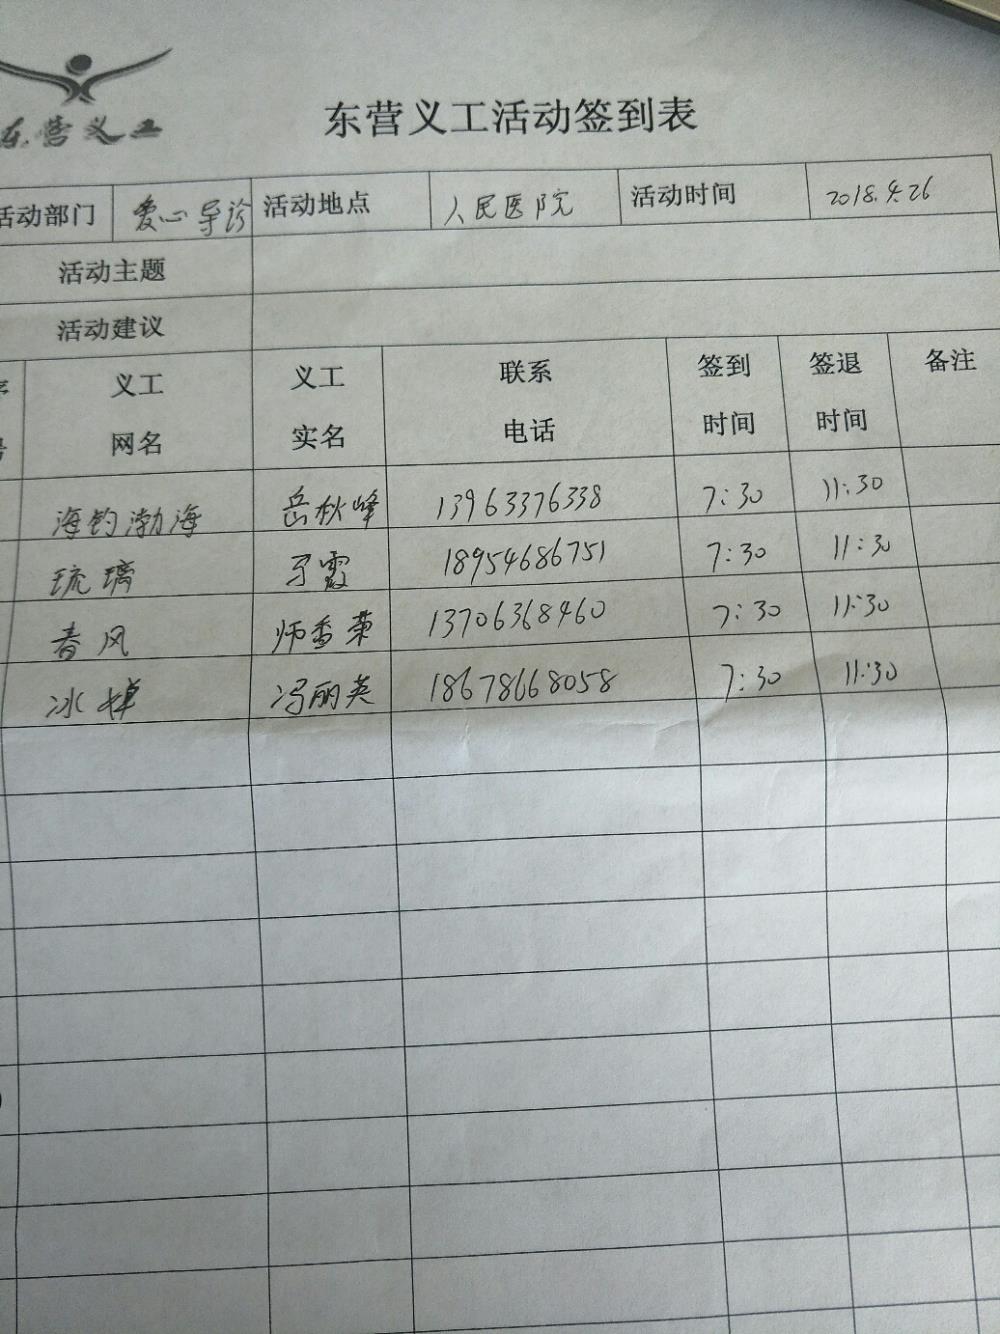 东营义工
东营义工活动签到表
活动部门 爱心导诊 活动地点 人民医院 活动时间 2018.4.26
活动主题
活动建议
序号 义工网名 义工实名 联系电话 签到时间 签退时间 备注
海钓渤海 岳秋峰 13963376338 7:30 11:30
琉璃 霞 18954686751 7:30 11:30
春风 师香荣 13706368460 7:30 11:30
冰 冯丽英 18678668058 7:30 11:30